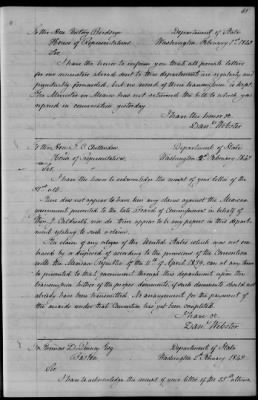 To the Hon.
Department of State
House of Representatives
Washington, February 1st 1843
Sir,
I have the honor to inform you that all private letters
for our ministers abroad sent to this department are regularly and
punctually forwarded, but no record of their transmission is kept.
The Minister in has not returned the bill to which you
in conversation yesterday.
I have the honor &c
Danl. Webster
To the Hon. J. C. Chittenden
Department of State
House of representatives
Washington 2d February 1843
Sir,
I have the honor to acknowledge the receipt of your letter of the
31st ulto.
There does not appear to have been any claims against the Mexican
government presented to the late Board of Commissioners in behalf of
Thos. J. nor do there appear to be any papers in this depart-
ment relating to such a claim.
The claim of any citizen of the United States which was not em-
braced by or disposed of according to the provisions of the Convention
with the Mexican Republic of the 11th of April 1839, can at any time
be presented to that government through this department upon the
transmission hither of the proper documents, if such documents should not
already have been transmitted. No arrangement for the payment of
the awards under that Convention has yet been completed.
I have &c
Danl. Webster
Esq
Department of State
Washington 2 February 1843
Sir
I have to acknowledge the receipt of your letter of the 25th ultimo